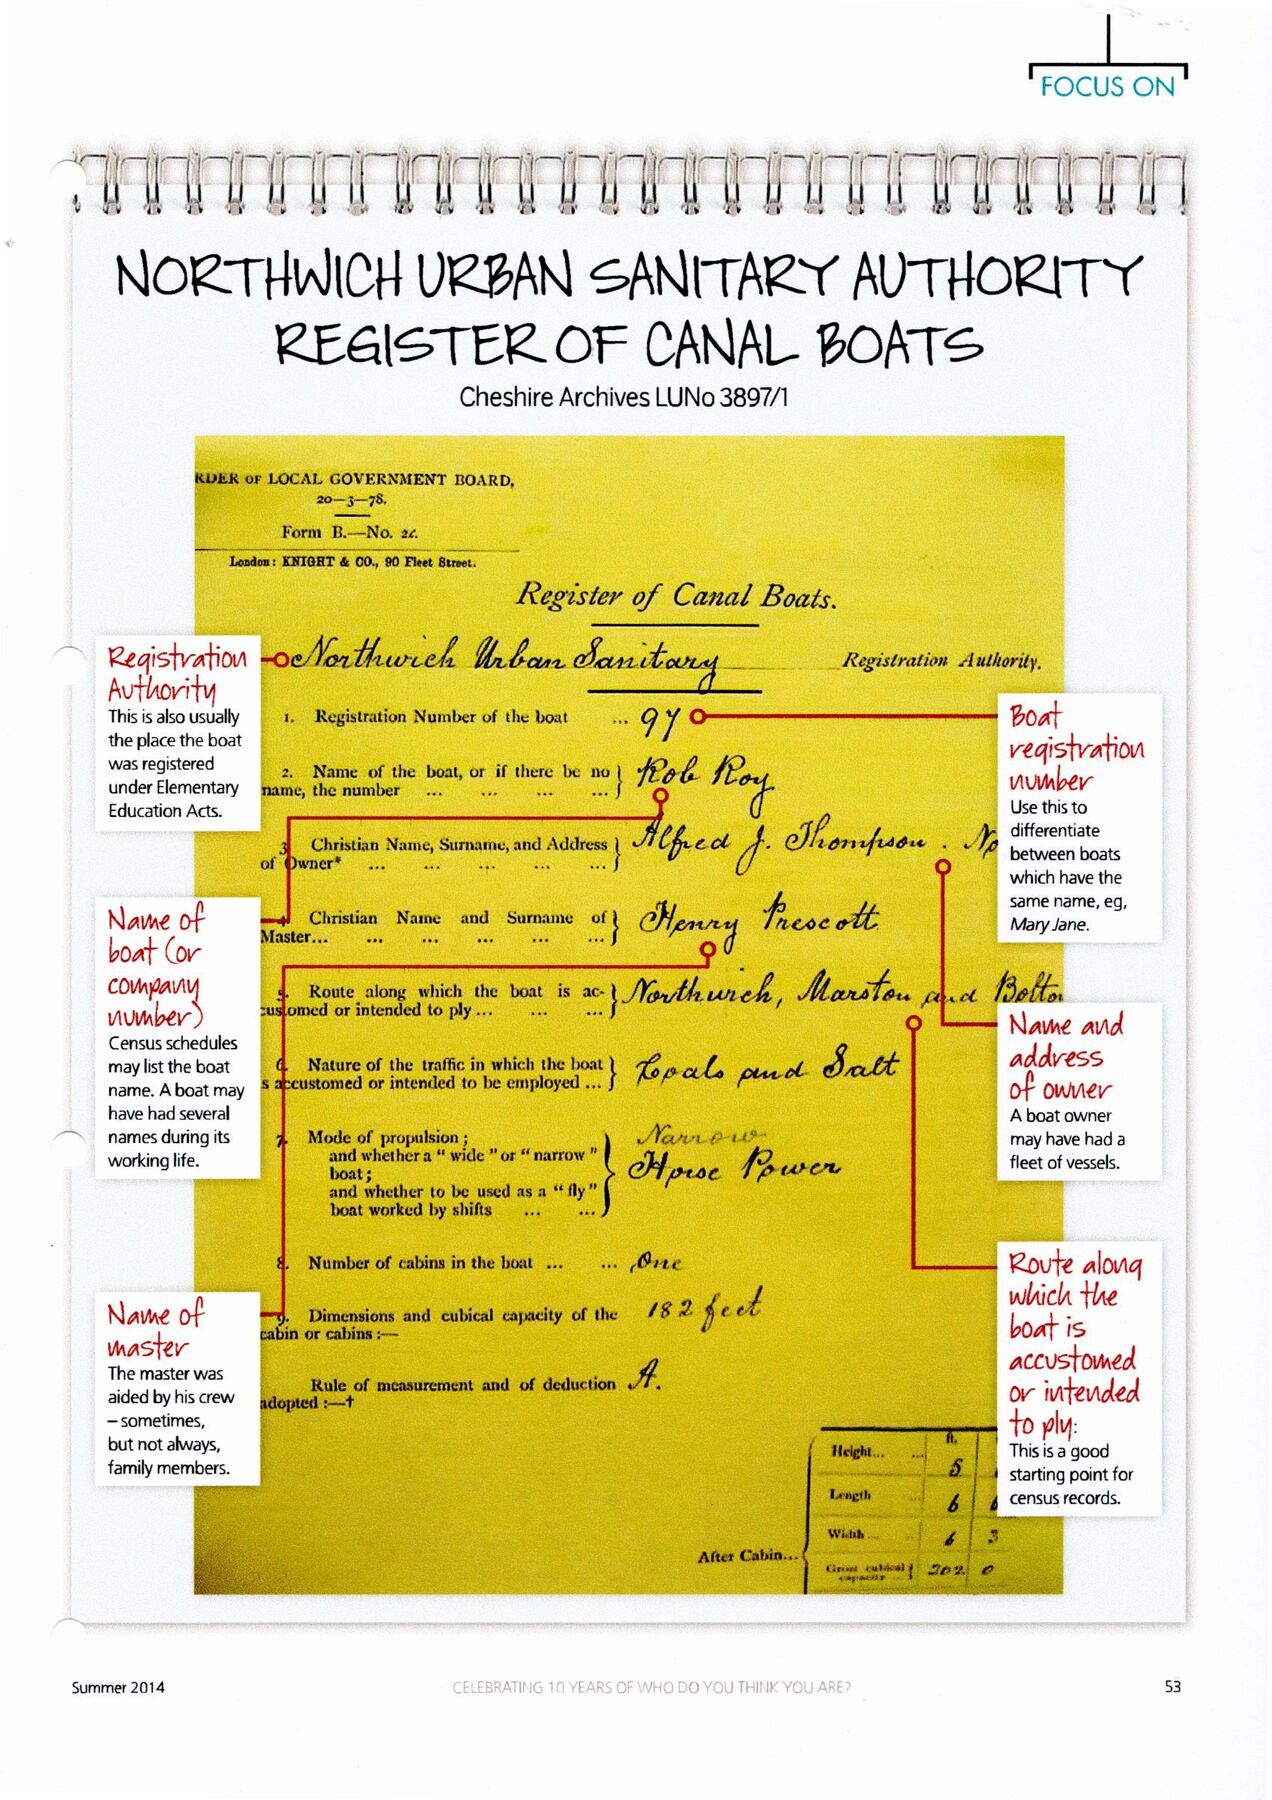 FOCUS ON
NORTHWICH URBAN SANITARY AUTHORITY
REGISTER OF CANAL BOATS
Cheshire Archives LUNo 3897/1
RDER OF LOCAL GOVERNMENT BOARD,
20—3—78.
Form B.—No. 2c.
London: KNIGHT & CO., 90 Fleet Street.
Register of Canal Boats.
Northwich Urban Sanitary Registration Authority.
1. Registration Number of the boat ... 97
2. Name of the boat, or if there be no
name, the number ... ... ... ...
Rob Roy
3 Christian Name, Surname, and Address
of Owner* ... ... ... ... ...
Alfred J. Thompson. No
4 Christian Name and Surname of
Master... ... ... ... ... ...
Henry Prescott
5. Route along which the boat is ac-
customed or intended to ply ... ... ...
Northwich, Marston and Bolton
6. Nature of the traffic in which the boat
s accustomed or intended to be employed ...
Coals and Salt
7. Mode of propulsion;
and whether a "wide" or "narrow"
boat;
and whether to be used as a "fly"
boat worked by shifts ... ...
Narrow
Horse Power
8. Number of cabins in the boat ... ... One
9. Dimensions and cubical capacity of the
cabin or cabins :—
182 feet
Rule of measurement and of deduction
adopted :—†
A.
ft.
Height... ... 5
Length ... 6 6
Width ... ... 6 3
After Cabin...
Gross cubical
capacity ...
202 0
Registration
Authority
This is also usually
the place the boat
was registered
under Elementary
Education Acts.
Name of
boat (or
company
number)
Census schedules
may list the boat
name. A boat may
have had several
names during its
working life.
Name of
master
The master was
aided by his crew
– sometimes,
but not always,
family members.
Boat
registration
number
Use this to
differentiate
between boats
which have the
same name, eg,
Mary Jane.
Name and
address
of owner
A boat owner
may have had a
fleet of vessels.
Route along
which the
boat is
accustomed
or intended
to ply:
This is a good
starting point for
census records.
Summer 2014
CELEBRATING 10 YEARS OF WHO DO YOU THINK YOU ARE?
53